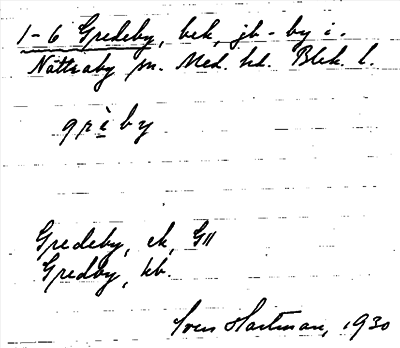 1-6 Gredeby, bek, jb-by i.
Nättraby sn. Med. hd. Blek. l.
grè by
Gredeby, ek, GII
Gredby, kb.
Sven Hartman, 1930